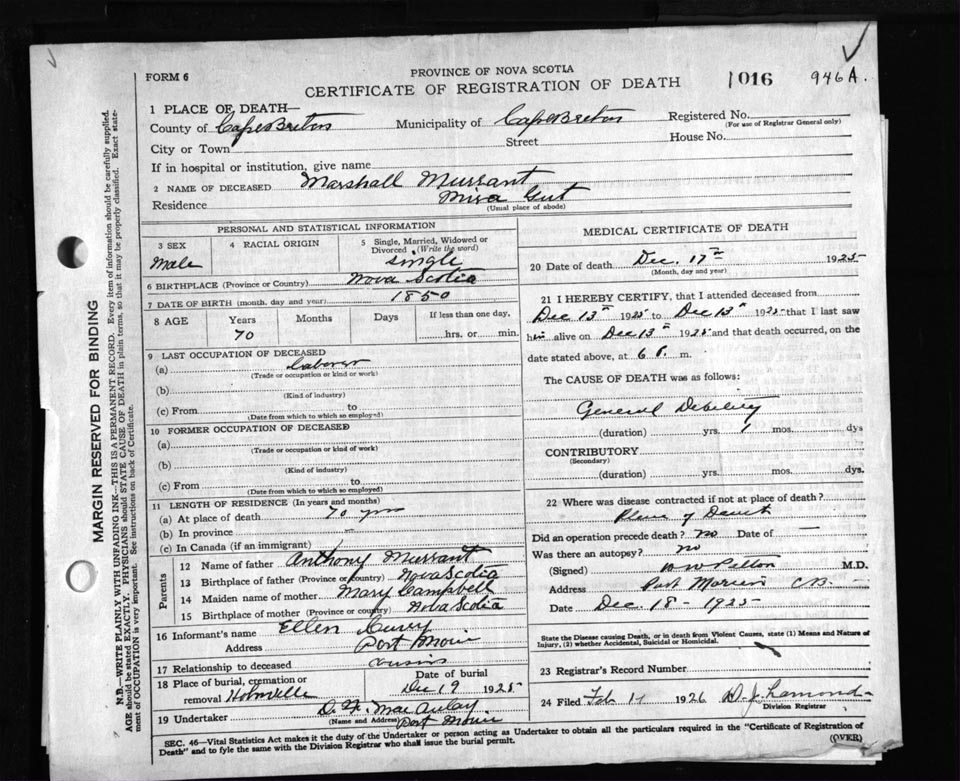 FORM 6
PROVINCE OF NOVA SCOTIA
CERTIFICATE OF REGISTRATION OF DEATH
1016 946 A.
1 PLACE OF DEATH—
County of Cape Breton Municipality of Cape Breton Registered No.
(For use of Registrar General only)
City or Town Street House No.
If in hospital or institution, give name
2 NAME OF DECEASED Marshall Murrant
Residence Mira Gut
(Usual place of abode)
PERSONAL AND STATISTICAL INFORMATION
3 SEX Male
4 RACIAL ORIGIN
5 Single, Married, Widowed or Divorced (Write the word) single
6 BIRTHPLACE (Province or Country) Nova Scotia
7 DATE OF BIRTH (month, day and year) 1850
8 AGE Years Months Days If less than one day,
70 hrs. or min.
9 LAST OCCUPATION OF DECEASED
(a) Laborer
(Trade or occupation or kind or work)
(b)
(Kind of industry)
(c) From to
(Date from which to which so employed)
10 FORMER OCCUPATION OF DECEASED
(a)
(Trade or occupation or kind of work)
(b)
(Kind of industry)
(c) From to
(Date from which to which so employed)
11 LENGTH OF RESIDENCE (In years and months)
(a) At place of death 70 yrs
(b) In province —
(c) In Canada (if an immigrant)
Parents
12 Name of father Anthony Murrant
13 Birthplace of father (Province or country) Nova Scotia
14 Maiden name of mother Mary Campbell
15 Birthplace of mother (Province or country) Nova Scotia
16 Informant's name Ellen
Address Port Morie
17 Relationship to deceased cousins
18 Place of burial, cremation or removal Date of burial
Homeville Dec 19 1925
19 Undertaker D. H. MacAulay
(Name and Address) Port Morie
MEDICAL CERTIFICATE OF DEATH
20 Date of death Dec. 17th 1925
(Month, day and year)
21 I HEREBY CERTIFY, that I attended deceased from
Dec 13th 1925 to Dec 13th 1925 that I last saw
him alive on Dec 13th 1925 and that death occurred, on the
date stated above, at 6 P. m.
The CAUSE OF DEATH was as follows:
General Debility
(duration) yrs. 1 mos. dys
CONTRIBUTORY
(Secondary)
(duration) yrs. mos. dys.
22 Where was disease contracted if not at place of death?
Place of Death
Did an operation precede death? no Date of —
Was there an autopsy? no
(Signed) M.D.
Address Port Morien C.B.
Date Dec. 18 - 1925
State the Disease causing Death, or in death from Violent Causes, state (1) Means and Nature of
Injury, (2) whether Accidental, Suicidal or Homicidal.
23 Registrar's Record Number
24 Filed Feb 1926 D. J. Lamond
Division Registrar
SEC. 46—Vital Statistics Act makes it the duty of the Undertaker or person acting as Undertaker to obtain all the particulars required in the "Certificate of Registration of
Death" and to fyle the same with the Division Registrar who shall issue the burial permit.
(OVER)
MARGIN RESERVED FOR BINDING
N.B.—WRITE PLAINLY WITH UNFADING INK—THIS IS A PERMANENT RECORD. Every item of information should be carefully supplied.
AGE should be stated EXACTLY. PHYSICIANS should STATE CAUSE OF DEATH in plain terms, so that it may be properly classified. Exact state-
ment of OCCUPATION is very important. See instructions on back of Certificate.